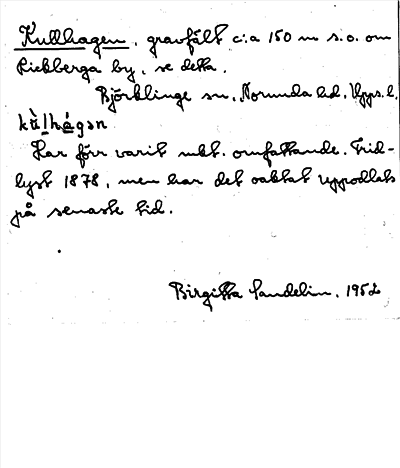 Kullhagen, gravfält c:a 150 m s.o. om
Rickberga by, se detta.
Björklinge sn, Norunda hd, Upps.l.
kù̀l̥há̀gən
Har förr varit mkt. omfattande. Frid-
lyst 1878, men har det oaktat uppodlats
på senaste tid.
Birgitta Sandelin, 1952